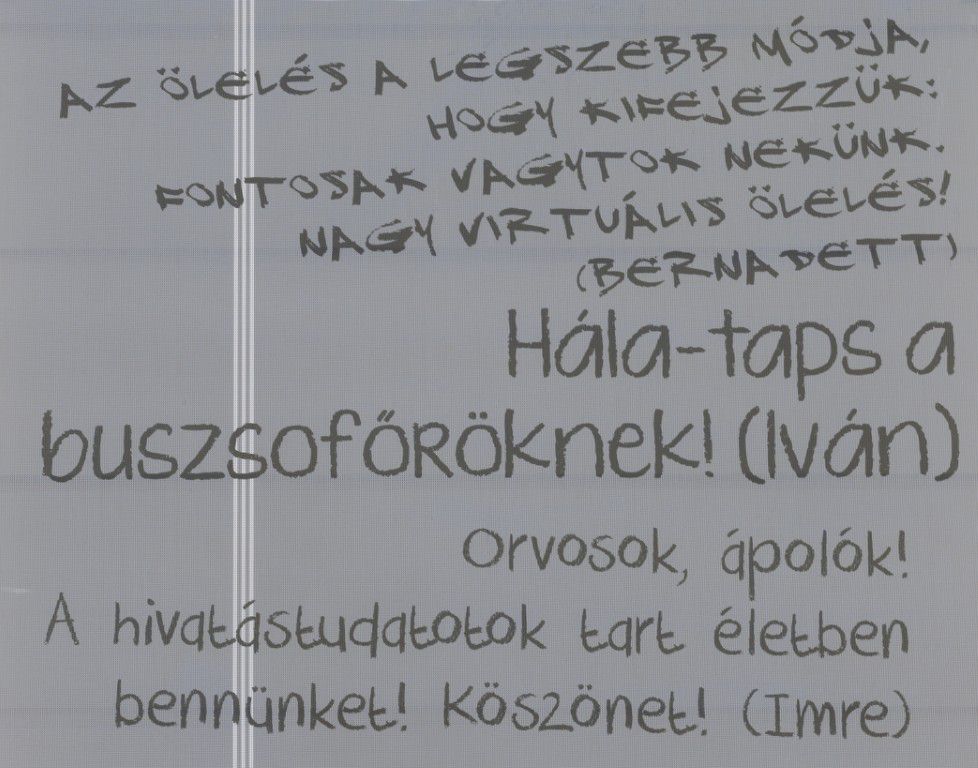 AZ ÖLELÉS A LEGSZEBB MÓDJA,
HOGY KIFEJEZZÜK:
FONTOSAK VAGYTOK NEKÜNK.
NAGY VIRTUÁLIS ÖLELÉS!
(BERNADETT)
Hála-taps a
buszsofőröknek! (Iván)
Orvosok, ápolók!
A hivatástudatotok tart életben
bennünket! Köszönet! (Imre)